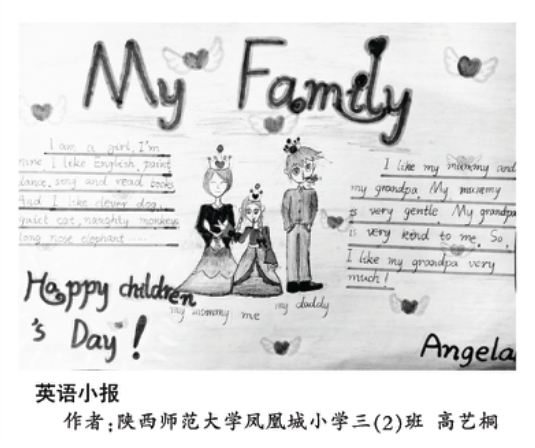 My Family
I am a girl. I'm
nine. I like English, paint
dance, sing and read books
And I like clever dog,
quiet cat, naughty monkey
long nose elephant ......
I like my mummy and
my grandpa. My mummy
is very gentle. My grandpa
is very kind to me. So,
I like my grandpa very
much!
Happy children
's Day!
my mommy me my daddy
Angela
英语小报
作者:陕西师范大学凤凰城小学三(2)班 高艺桐